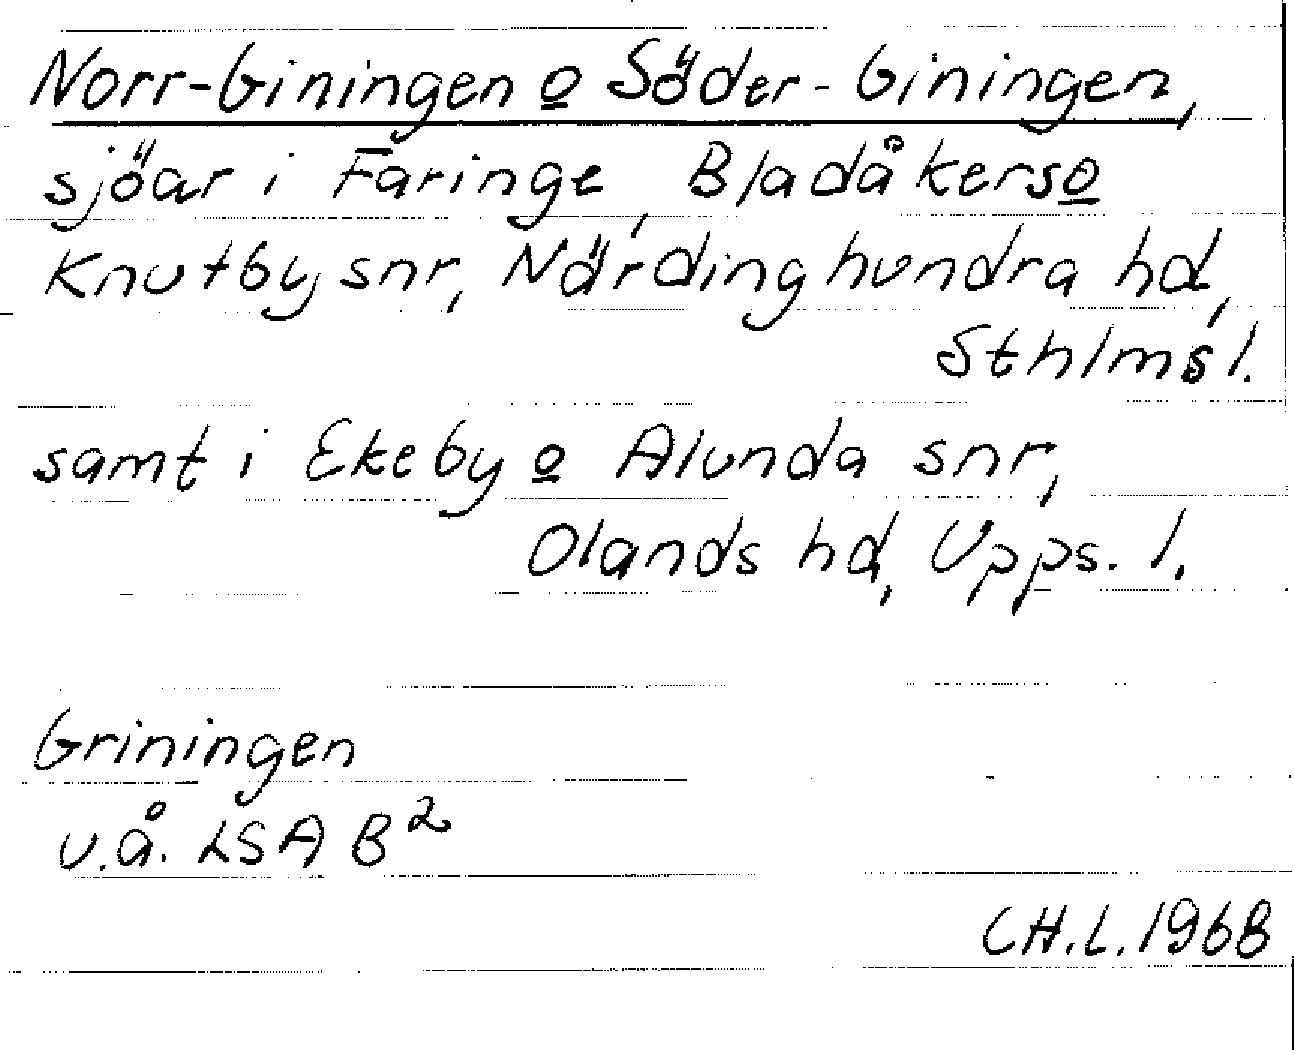 Norr-Giningen o Söder-Giningen,
sjöar i Faringe, Bladåkers o
Knutby snr, Närdinghundra hd,
Sthlms l.
samt i Ekeby o Alunda snr,
Olands hd, Upps. l.
Griningen
u.å. LSA B²
CH.L. 1968